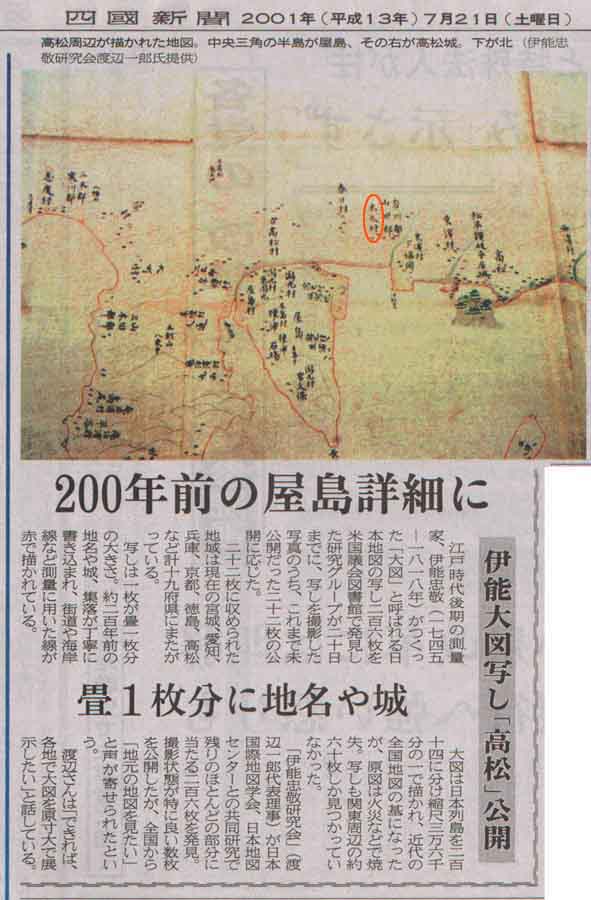 四國新聞 2001年(平成13年)7月21日(土曜日)
高松周辺が描かれた地図。中央三角の半島が屋島、その右が高松城。下が北(伊能忠
敬研究会渡辺一郎氏提供)
春日村
木太村
東濱村
高松
古高松村
屋島
200年前の屋島詳細に
伊能大図写し「高松」公開
江戸時代後期の測量
家、伊能忠敬(一七四五
―一八一八年)がつくっ
た「大図」と呼ばれる日
本地図の写し二百六枚を
米国議会図書館で発見し
た研究グループが二十日
までに、写しを撮影した
写真のうち、これまで未
公開だった二十二枚の公
開に応じた。
二十二枚に収められた
地域は現在の宮城、愛知、
兵庫、京都、徳島、高松
など計十九府県にまたが
っている。
写しは一枚が畳一枚分
の大きさ。約二百年前の
地名や城、集落が丁寧に
書き込まれ、街道や海岸
線など測量に用いた線が
赤で描かれている。
畳1枚分に地名や城
大図は日本列島を二百
十四に分け縮尺三万六千
分の一で描かれ、近代の
全国地図の基になった
が、原図は火災などで焼
失。写しも関東周辺の約
六十枚しか見つかってい
なかった。
「伊能忠敬研究会」(渡
辺一郎代表理事)が日本
国際地図学会、日本地図
センターとの共同研究で
残りのほとんどの部分に
当たる二百六枚を発見。
撮影状態が特に良い数枚
を公開したが、全国から
「地元の地図を見たい」
と声が寄せられたとい
う。
渡辺さんは「できれば、
各地で大図を原寸大で展
示したい」と話している。